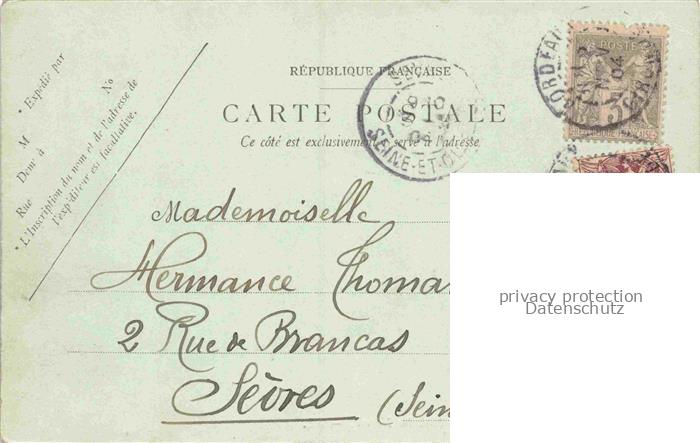 RÉPUBLIQUE FRANÇAISE
CARTE POSTALE
Ce côté est exclusivement réservé à l'adresse.
Expédié par
M
No
Demt à
Rue
L'Inscription du nom et de l'adresse de
l'expéditeur est facultative.
SEINE-ET-O
BORDEAU
04
POSTE
Mademoiselle
Hermance Thoma
2 Rue de Brancas
Sèvres (Sein
privacy protection
Datenschutz